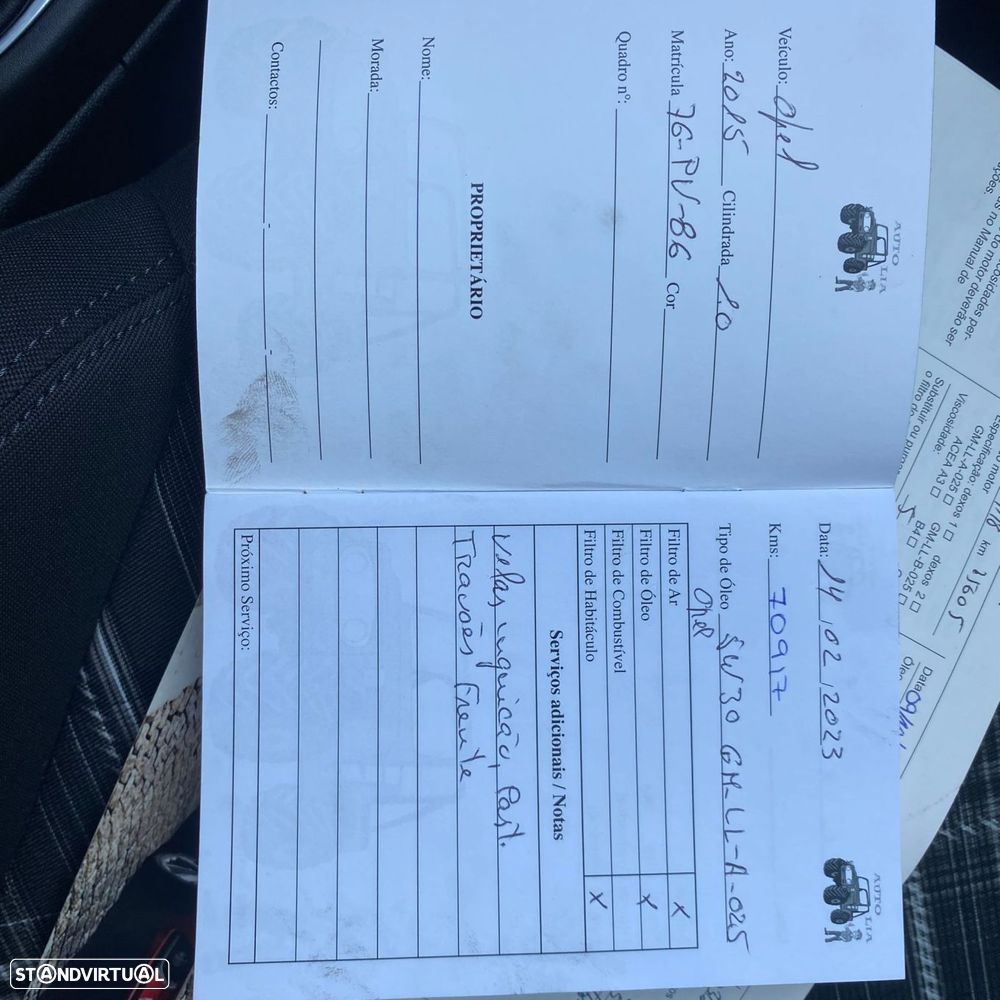 AUTO LIA
Veículo: Opel
Ano: 2015 Cilindrada 1.0
Matrícula 76-PV-86 Cor
Quadro nº:
PROPRIETÁRIO
Nome:
Morada:
Contactos: - -
AUTO LIA
Data: 14/02/2023
Kms: 70917
Tipo de Óleo 5W30 GM-LL-A-025
Opel
Filtro de Ar X
Filtro de Óleo X
Filtro de Combustível
Filtro de Habitáculo X
Serviços adicionais / Notas
Velas inguicão, Past.
Travões Frente
Próximo Serviço:
cosidades per-
do motor deverão ser
no Manual de
motor
Especificação: dexos 1 □ dexos 2 □
GM-LL-A-025 □ GM-LL-B-025 □
ACEA A3 □ B4 □
Viscosidade:
Substituir ou
o filtro do
km
Data
Óleo
STANDVIRTUAL